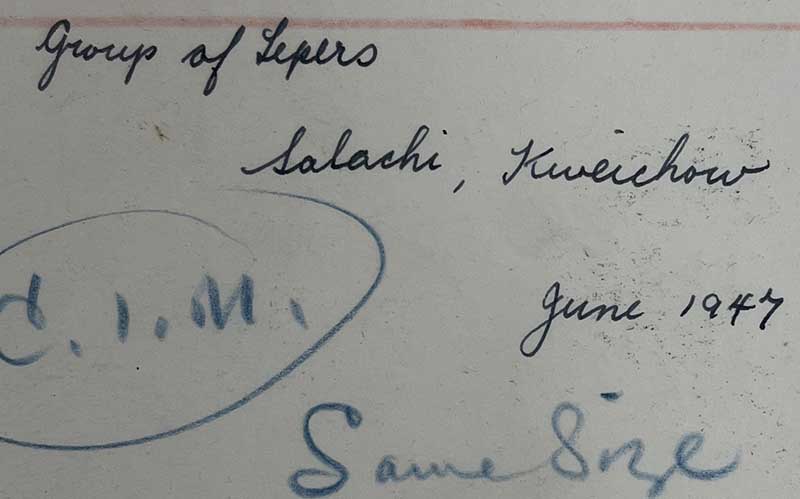 Group of Lepers
Salachi, Kweichow
C.I.M.
June 1947
Same Size